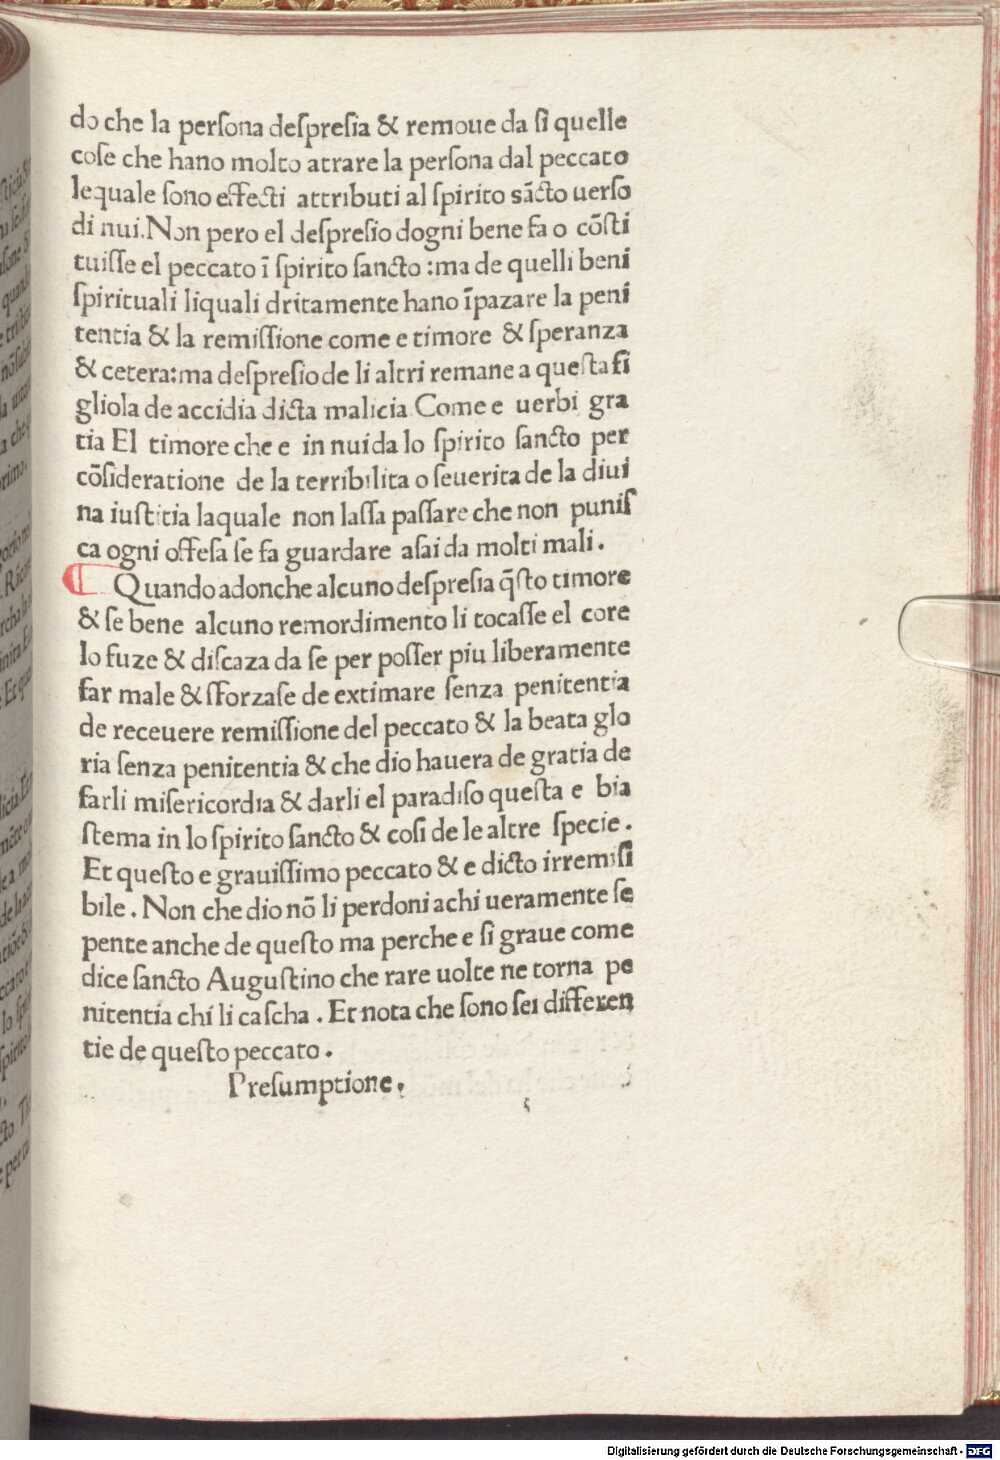 do che la perſona deſpreſia & remoue da ſi quelle
coſe che hano molto atrare la perſona dal peccato
lequale ſono effecti attributi al ſpirito sācto uerſo
di nui. Non pero el deſpreſio dogni bene fa o cōſti
tuiſſe el peccato ī ſpirito ſancto :ma de quelli beni
ſpirituali liquali dritamente hano īpazare la peni
tentia & la remiſſione come e timore & ſperanza
& cetera:ma deſpreſio de li altri remane a queſta fi
gliola de accidia dicta malicia Come e uerbi gra
tia El timore che e in nui da lo ſpirito ſancto per
cōſideratione de la terribilita o ſeuerita de la diui
na iuſtitia laquale non laſſa paſſare che non puniſ
ca ogni offeſa ſe fa guardare aſai da molti mali.
Quando adonche alcuno deſpreſia q̄ſto timore
& ſe bene alcuno remordimento li tocaſſe el core
lo fuze & diſcaza da ſe per poſſer piu liberamente
far male & sforzaſe de extimare ſenza penitentia
de receuere remiſſione del peccato & la beata glo
ria ſenza penitentia & che dio hauera de gratia de
farli miſericordia & darli el paradiſo queſta e bia
ſtema in lo ſpirito ſancto & coſi de le altre ſpecie.
Et queſto e grauiſſimo peccato & e dicto irremiſi
bile. Non che dio nō li perdoni achi ueramente ſe
pente anche de queſto ma perche e ſi graue come
dice ſancto Auguſtino che rare uolte ne torna pe
nitentia chi li caſcha. Et nota che ſono ſei differen
tie de queſto peccato.
Preſumptione.
Digitalisierung gefördert durch die Deutsche Forschungsgemeinschaft - DFG